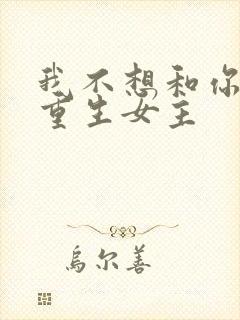 我不想和你
重生女主
乌尔善